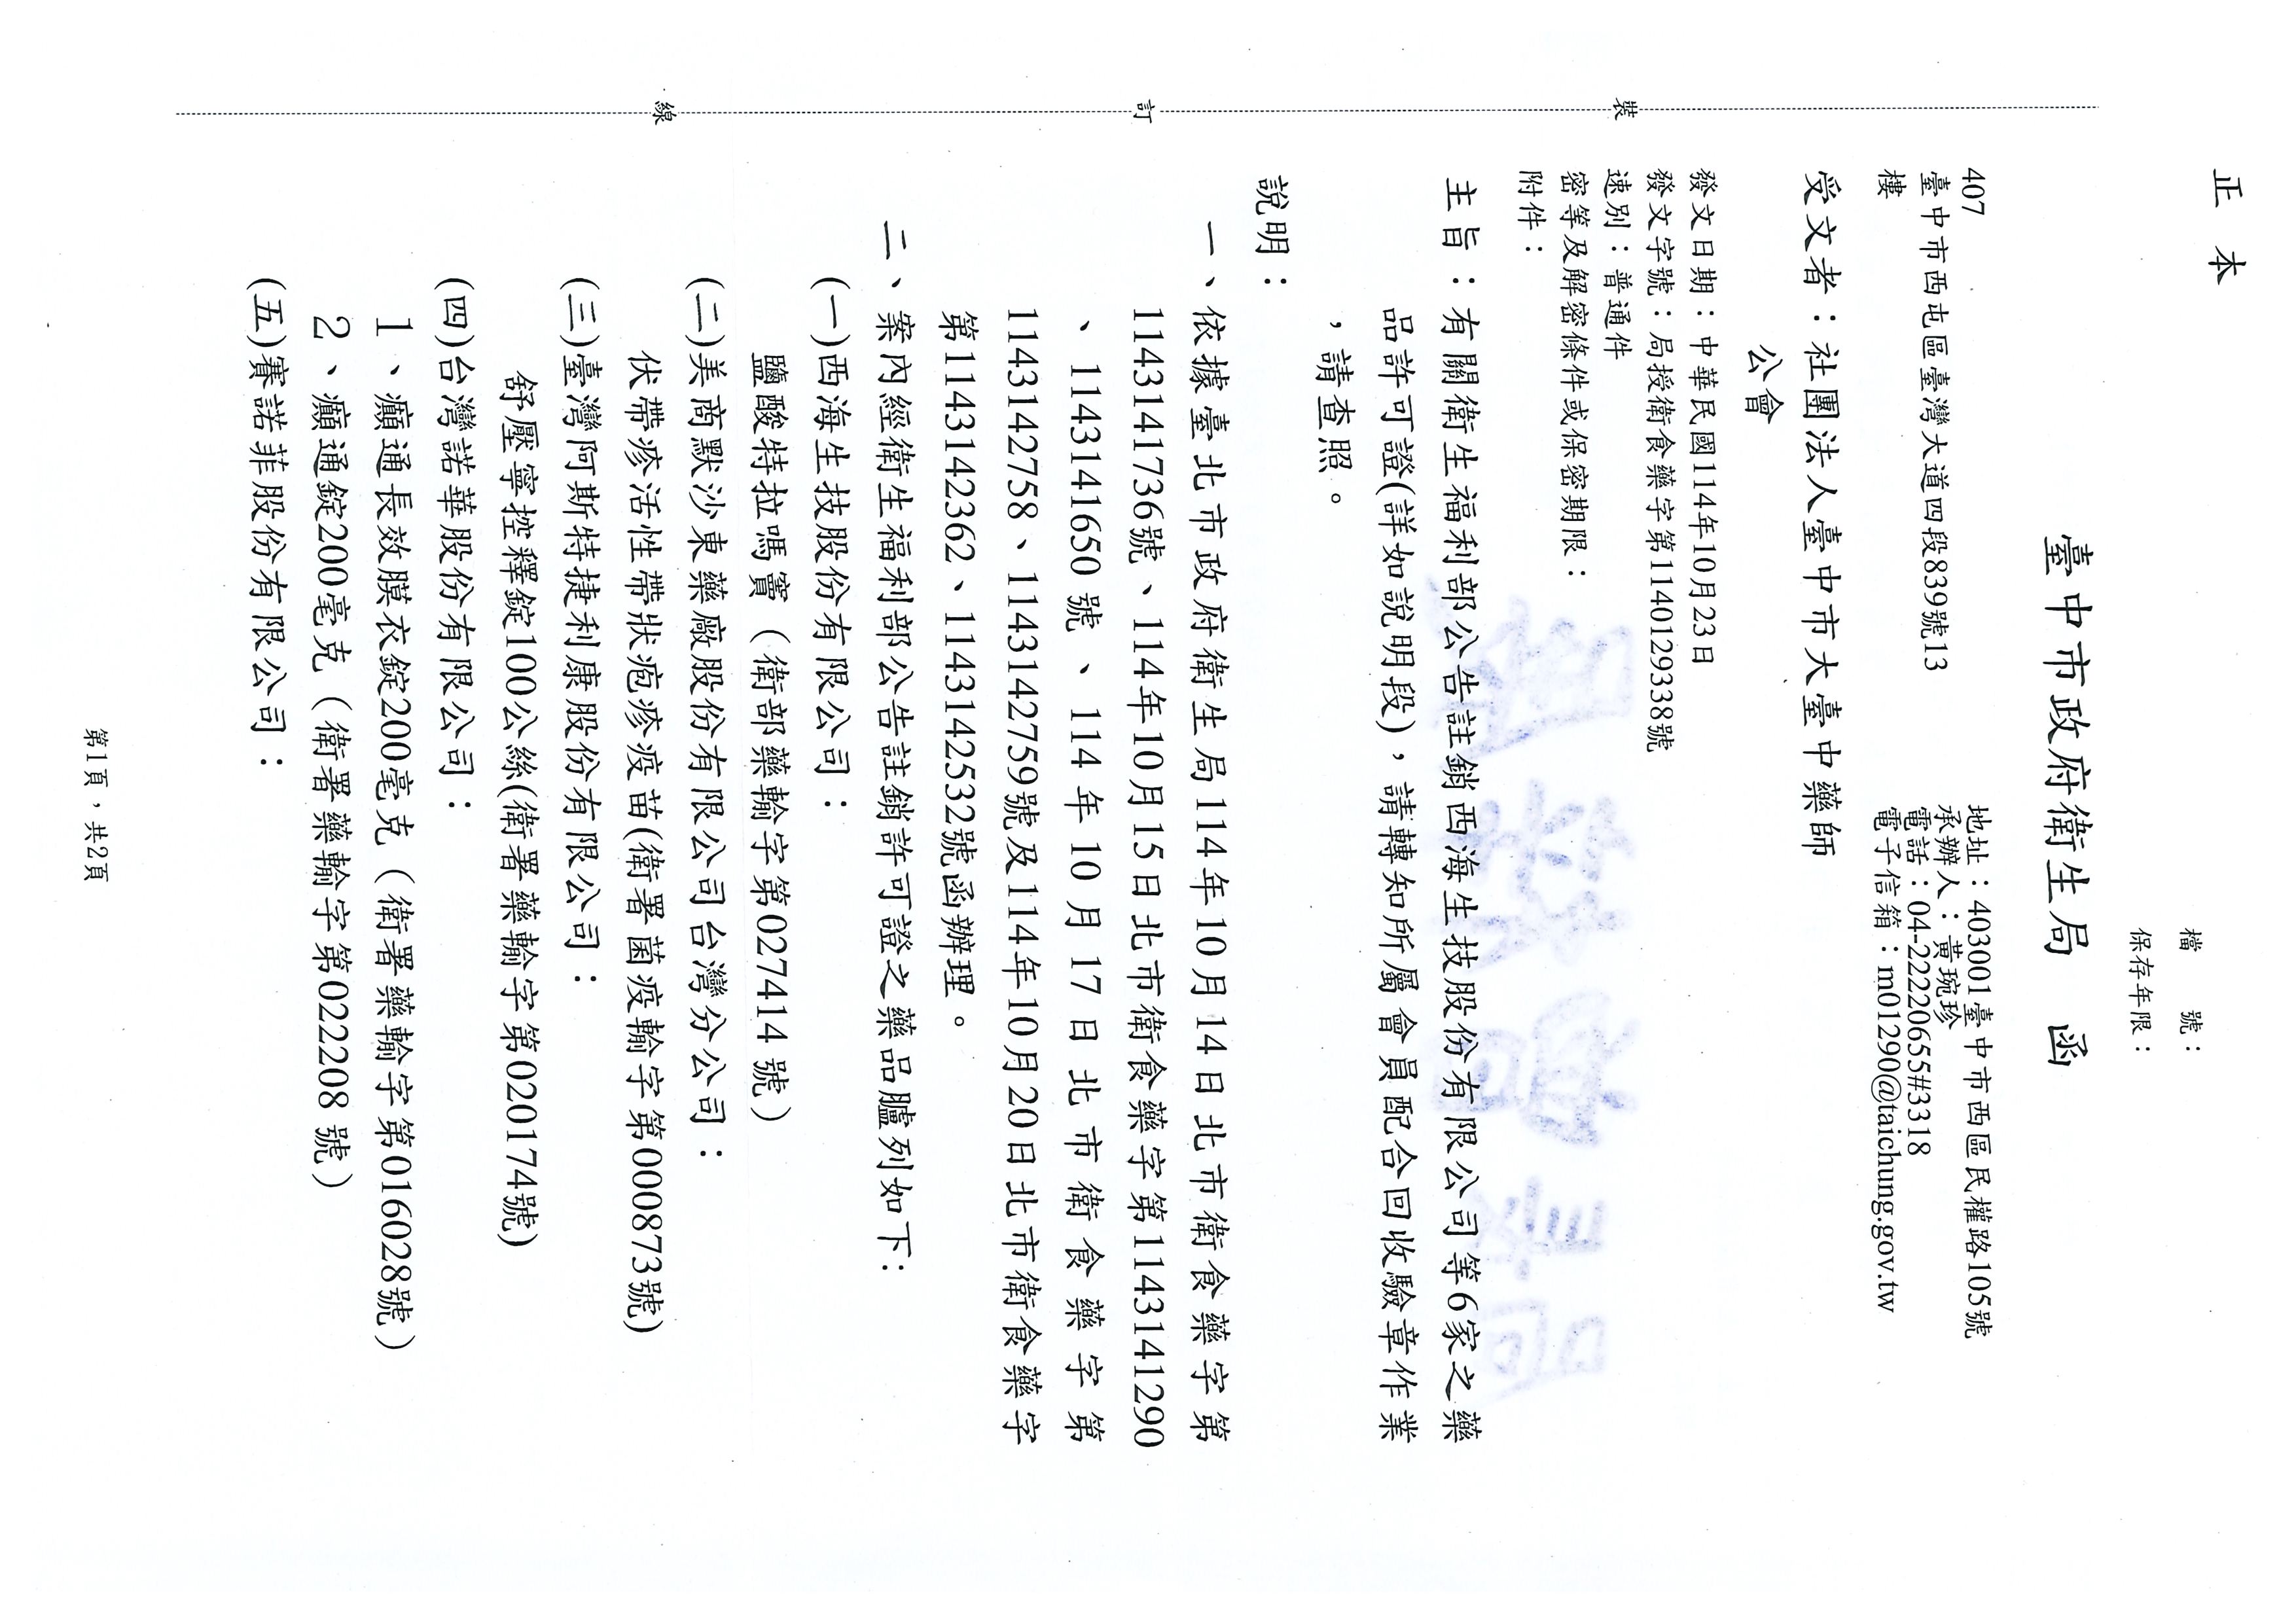 正本
檔　　號：
保存年限：
臺中市政府衛生局　函
407
臺中市西屯區臺灣大道四段839號13
樓
地址：403001臺中市西區民權路105號
承辦人：黃琬珍
電話：04-22220655#3318
電子信箱：m01290@taichung.gov.tw
受文者：社團法人臺中市大臺中藥師
公會
發文日期：中華民國114年10月23日
發文字號：局授衛食藥字第1140129338號
速別：普通件
密等及解密條件或保密期限：
附件：
主旨：有關衛生福利部公告註銷西海生技股份有限公司等6家之藥
品許可證(詳如說明段)，請轉知所屬會員配合回收驗章作業
，請查照。
說明：
一、依據臺北市政府衛生局114年10月14日北市衛食藥字第
1143141736號、114年10月15日北市衛食藥字第1143141290
、1143141650號、114年10月17日北市衛食藥字第
1143142758、1143142759號及114年10月20日北市衛食藥字
第1143142362、1143142532號函辦理。
二、案內經衛生福利部公告註銷許可證之藥品臚列如下:
(一)西海生技股份有限公司：
鹽酸特拉嗎竇（衛部藥輸字第027414號）
(二)美商默沙東藥廠股份有限公司台灣分公司：
伏帶疹活性帶狀疱疹疫苗(衛署菌疫輸字第000873號)
(三)臺灣阿斯特捷利康股份有限公司：
舒壓寧控釋錠100公絲(衛署藥輸字第020174號)
(四)台灣諾華股份有限公司：
1、癲通長效膜衣錠200毫克（衛署藥輸字第016028號）
2、癲通錠200毫克（衛署藥輸字第022208號）
(五)賽諾菲股份有限公司：
第1頁，共2頁
裝
訂
線